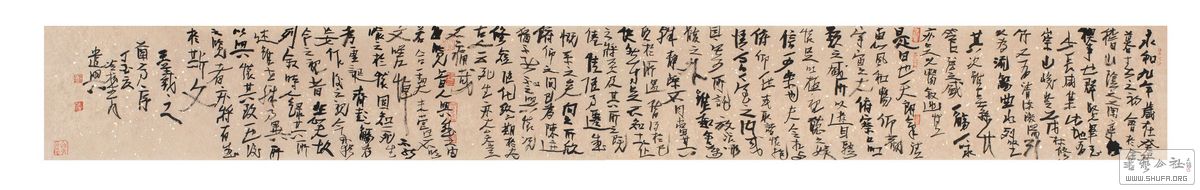 永和九年歲在癸
暮春之初會於
稽山陰之蘭亭
稧事也群賢畢至
少長咸集此地有
崇山峻領茂林脩
竹又有清流激湍
為流觴曲水列坐
其次雖無絲竹
管弦之盛一觴一詠
亦足以暢敘幽情
是日也天朗氣清
惠風和暢仰觀
宇宙之大俯察品
類之盛所以遊目騁
懷足以極視聽之娛
信可樂也夫人之相與
俯仰一世或取諸懷抱
悟言一室之內或
因寄所託放浪形
骸之外雖趣舍萬殊
靜躁不同當其欣
於所遇蹔得於己
快然自足不知老之
將至及其所之既
惓情隨事遷感
慨係之矣向之所欣
俛仰之間以為陳迹
猶不能不以之興懷
況脩短隨化終期於盡
古人云死生亦大矣
豈不痛哉
每攬昔人興感之由
若合一契未嘗不臨
文嗟悼不能
喻之於懷固知一死
生為虛誕齊彭殤為
妄作後之視今亦由
今之視昔悲夫故
列敘時人錄其所
述雖世殊事異所
以興懷其致一也後
之攬者亦將有感
於斯文
王羲之
蘭亭序
書法公社
WWW.SHUFA.ORG